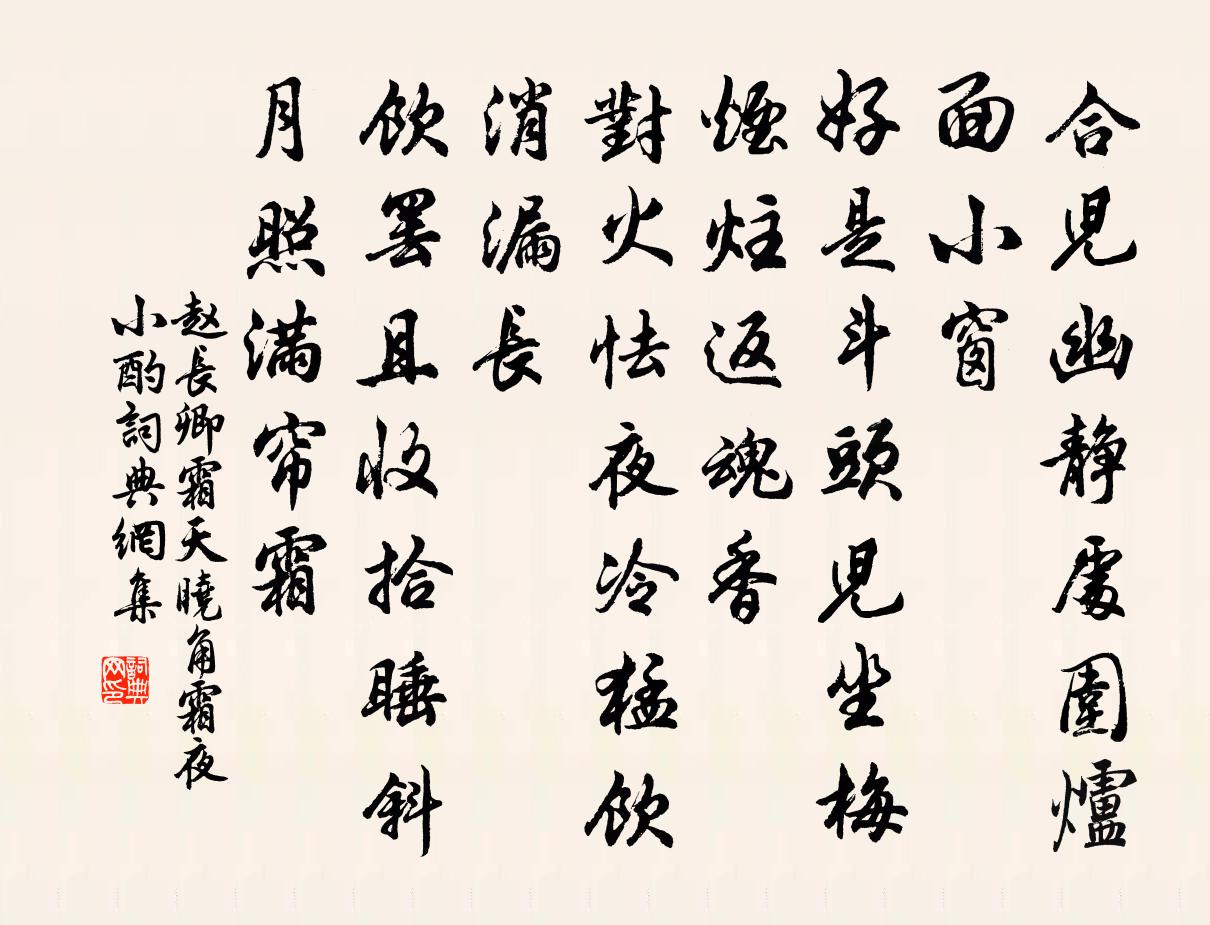 合児幽静處圍爐
面小窗
好是斗頭児坐梅
煙炷返魂香
對火怯夜冷猛飲
消漏長
飲罢且收拾睡斜
月照满帘霜
赵長卿霜天曉角霜夜
小酌詞典網集
詞典网印